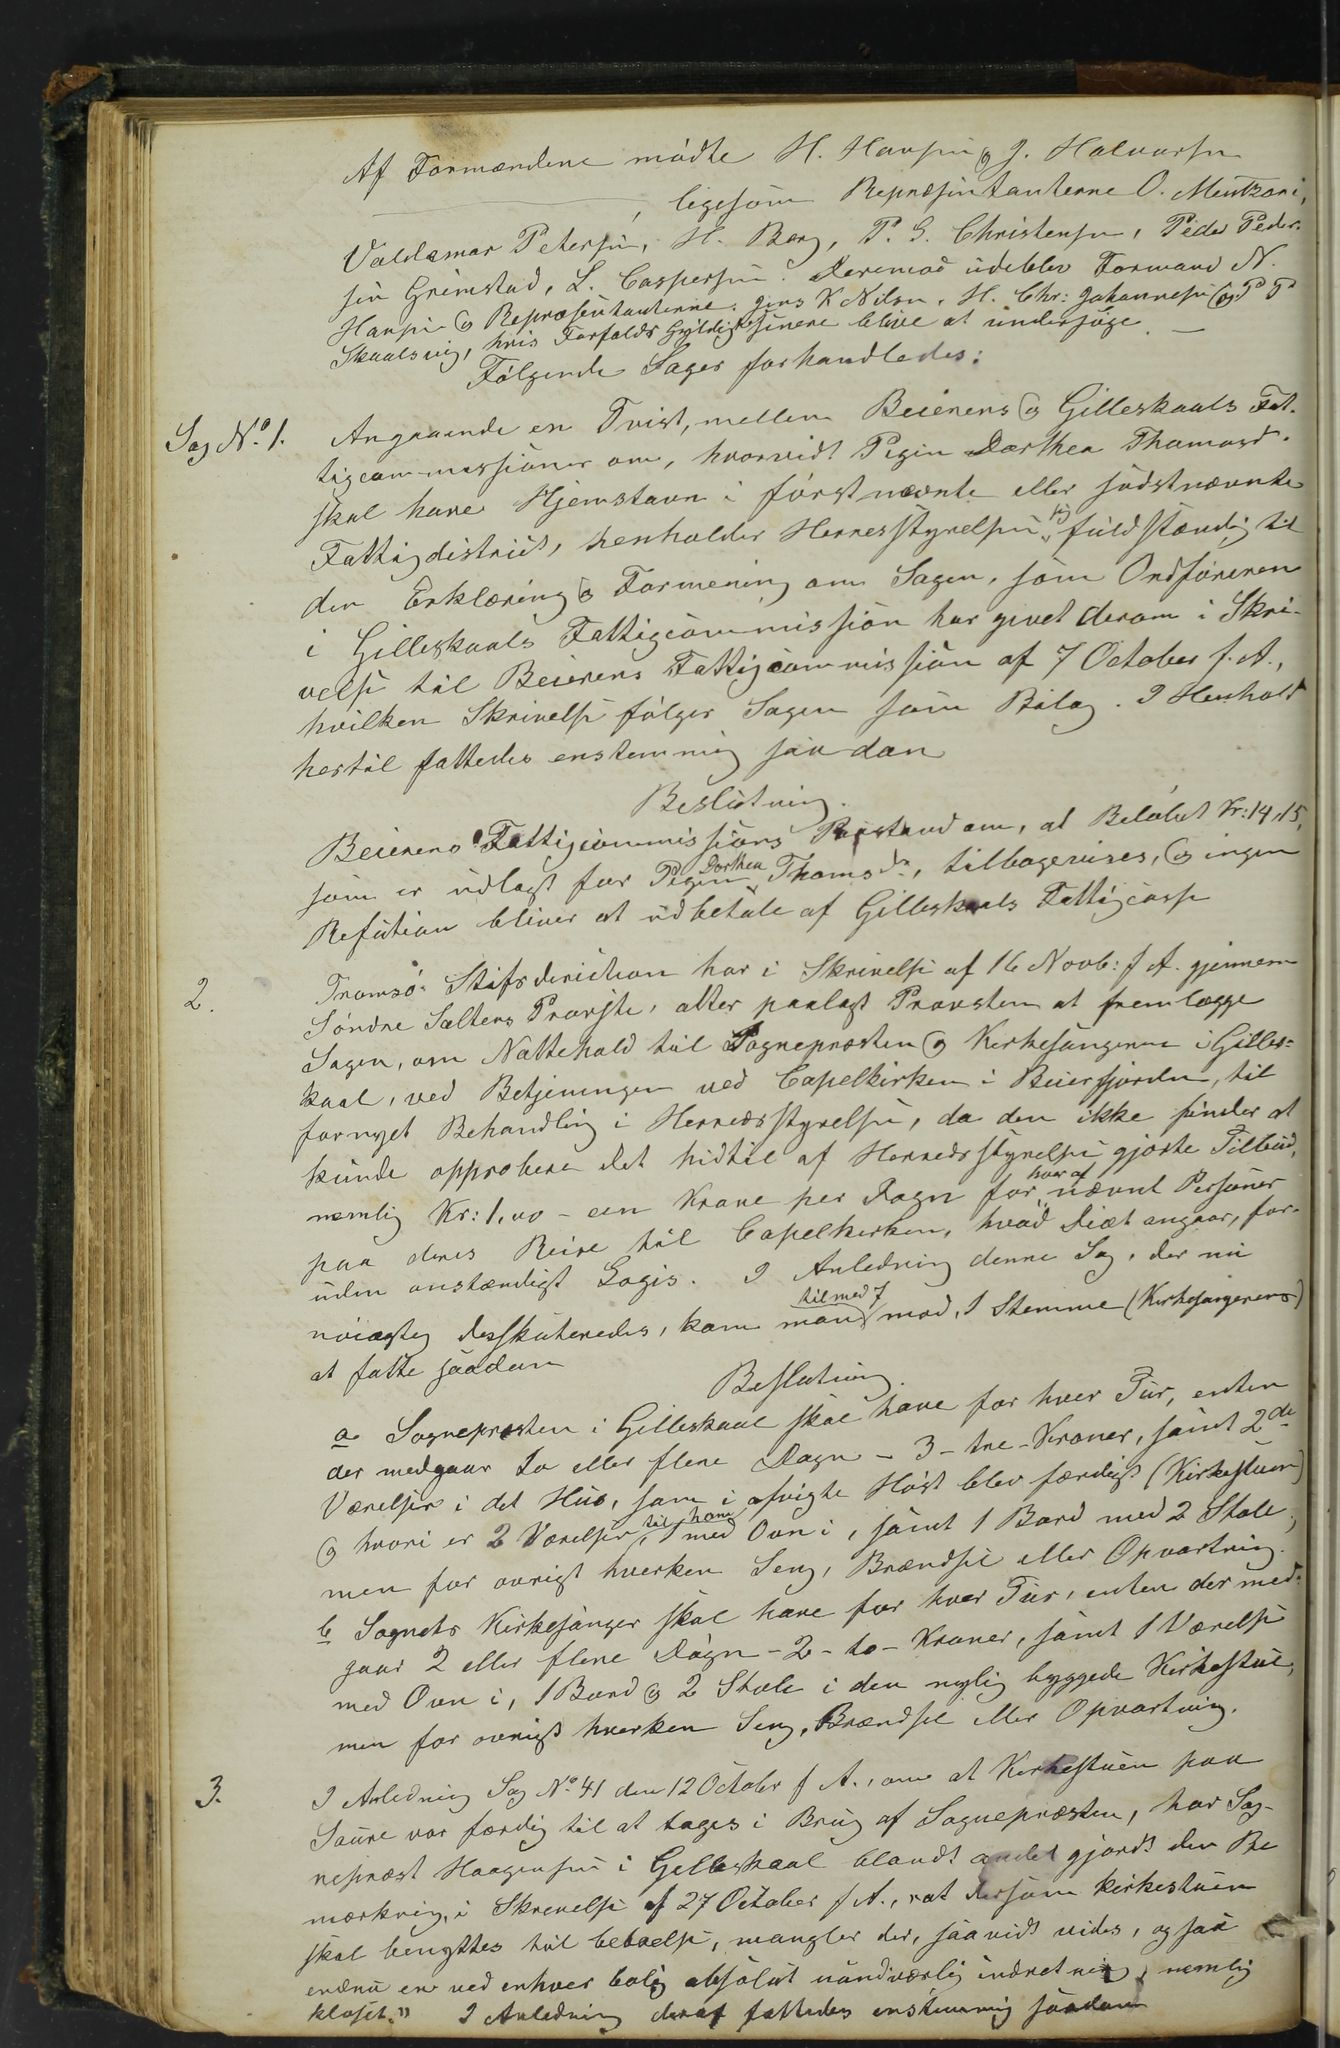 Af Formændene mødte H. Hansen og J. Halvorsen
, ligesom Repræsentanterne O. Mentzoni,
Valdemar Petersen, H. Berg, P. G. Christensen, Peder Peder-
sen Grimstad, L. Caspersen. Deremod udeblev Formand N.
Hansen og Repræsentanterne: Jens K Nilsn, H. Chr: Johannesen og P P
Skaalsvig, hvis Forfalds Gyldighed senere blive at undersøge. —
Følgende Sager forhandledes:
Sag No 1. Angaaende en Tvist, mellem Beierens og Gilleskaals Fat-
tigcommissioner om, hvorvidt Pigen Dorthea Thomasd.
skal have Hjemstavn i først nævnte eller sidstnævnte
Fattigdistrict, henholder Herredsstyrelsen sig fuldstændig til
den Erklæring og Formening om Sagen, som Ordføreren
i Gilleskaals Fattigcommission har givet derom i Skri-
velse til Beierens Fattigcommission af 7 October f. A.,
hvilken Skrivelse følger Sagen som Bilag. I Henhold
hertil fattedes enstemmig saadan
Beslutning.
Beierens Fattigcommissions Paastand om, at Beløbet Kr: 14,15,
som er udlagt for Pigen Dorthea Thomsdr, tilbagevises, og ingen
Refution bliver at udbetale af Gilleskaals Fattigcasse
2. Tromsø Stifsdirection har i Skrivelse af 16 Novb: f A. gjennem
Søndre Saltens Provste, atter paalagt Provsten at fremlægge
Sagen, om Nattehold til Sognepræsten og Kirkesangeren i Gilles-
kaal, ved Betjeningen ved Capelkirken i Beierfjorden, til
fornyet Behandling i Herredsstyrelsen, da den ikke finder at
kunde approbere det hidtil af Herredsstyrelsen gjorte Tilbud,
nemlig Kr: 1,00 - een Krone per Døgn for hver af nævnt Personer
paa deres Reise til Capelkirken, hvad Diæt angaar, for-
uden anstændigt Logis. I Anledning denne Sag, der nu
nøiagtig disskuteredes, kom man til med 7 mod 1 Stemme (Kirkesangerens)
at fatte saadan
Beslutning.
a Sognepræsten i Gilleskaal skal have for hver Tur, enten
der medgaar To eller flere Døgn - 3 - tre - Kroner, samt 2de
Værelser i det Hus, som i afvigte Høst blev færdigt (Kirkestuen)
og hvori er 2 Værelser til ham, 1 med Ovn i, samt 1 Bord med 2 Stole,
men for øvrigt hverken Seng, Brændsel eller Opvartning.
b Sognets Kirkesanger skal have for hver Tur, enten der med-
gaar 2 eller flere Døgn - 2 - to - Kroner, samt 1 Værelse
med Ovn i, 1 Bord og 2 Stole i den nylig byggede Kirkestue,
men for øvrigt hverken Seng, Brændsel eller Opvartning.
3. I Anledning Sag No 41 den 12 October f A., om at Kirkestuen paa
Saure var færdig til at tages i Brug af Sognepræsten, har Sog-
nepræst Haagensen i Gilleskaal blandt andet gjordt den Be
mærkning, i Skrivelse af 27 October f A., at dersom kirkestuen
skal benyttes til beboelse, mangler der, saavidt vides, ogsaa
endnu en ved enhver bolig absolut uundværlig indretning, nemlig
kloset." I Anledning deraf fattedes enstemmig saadan